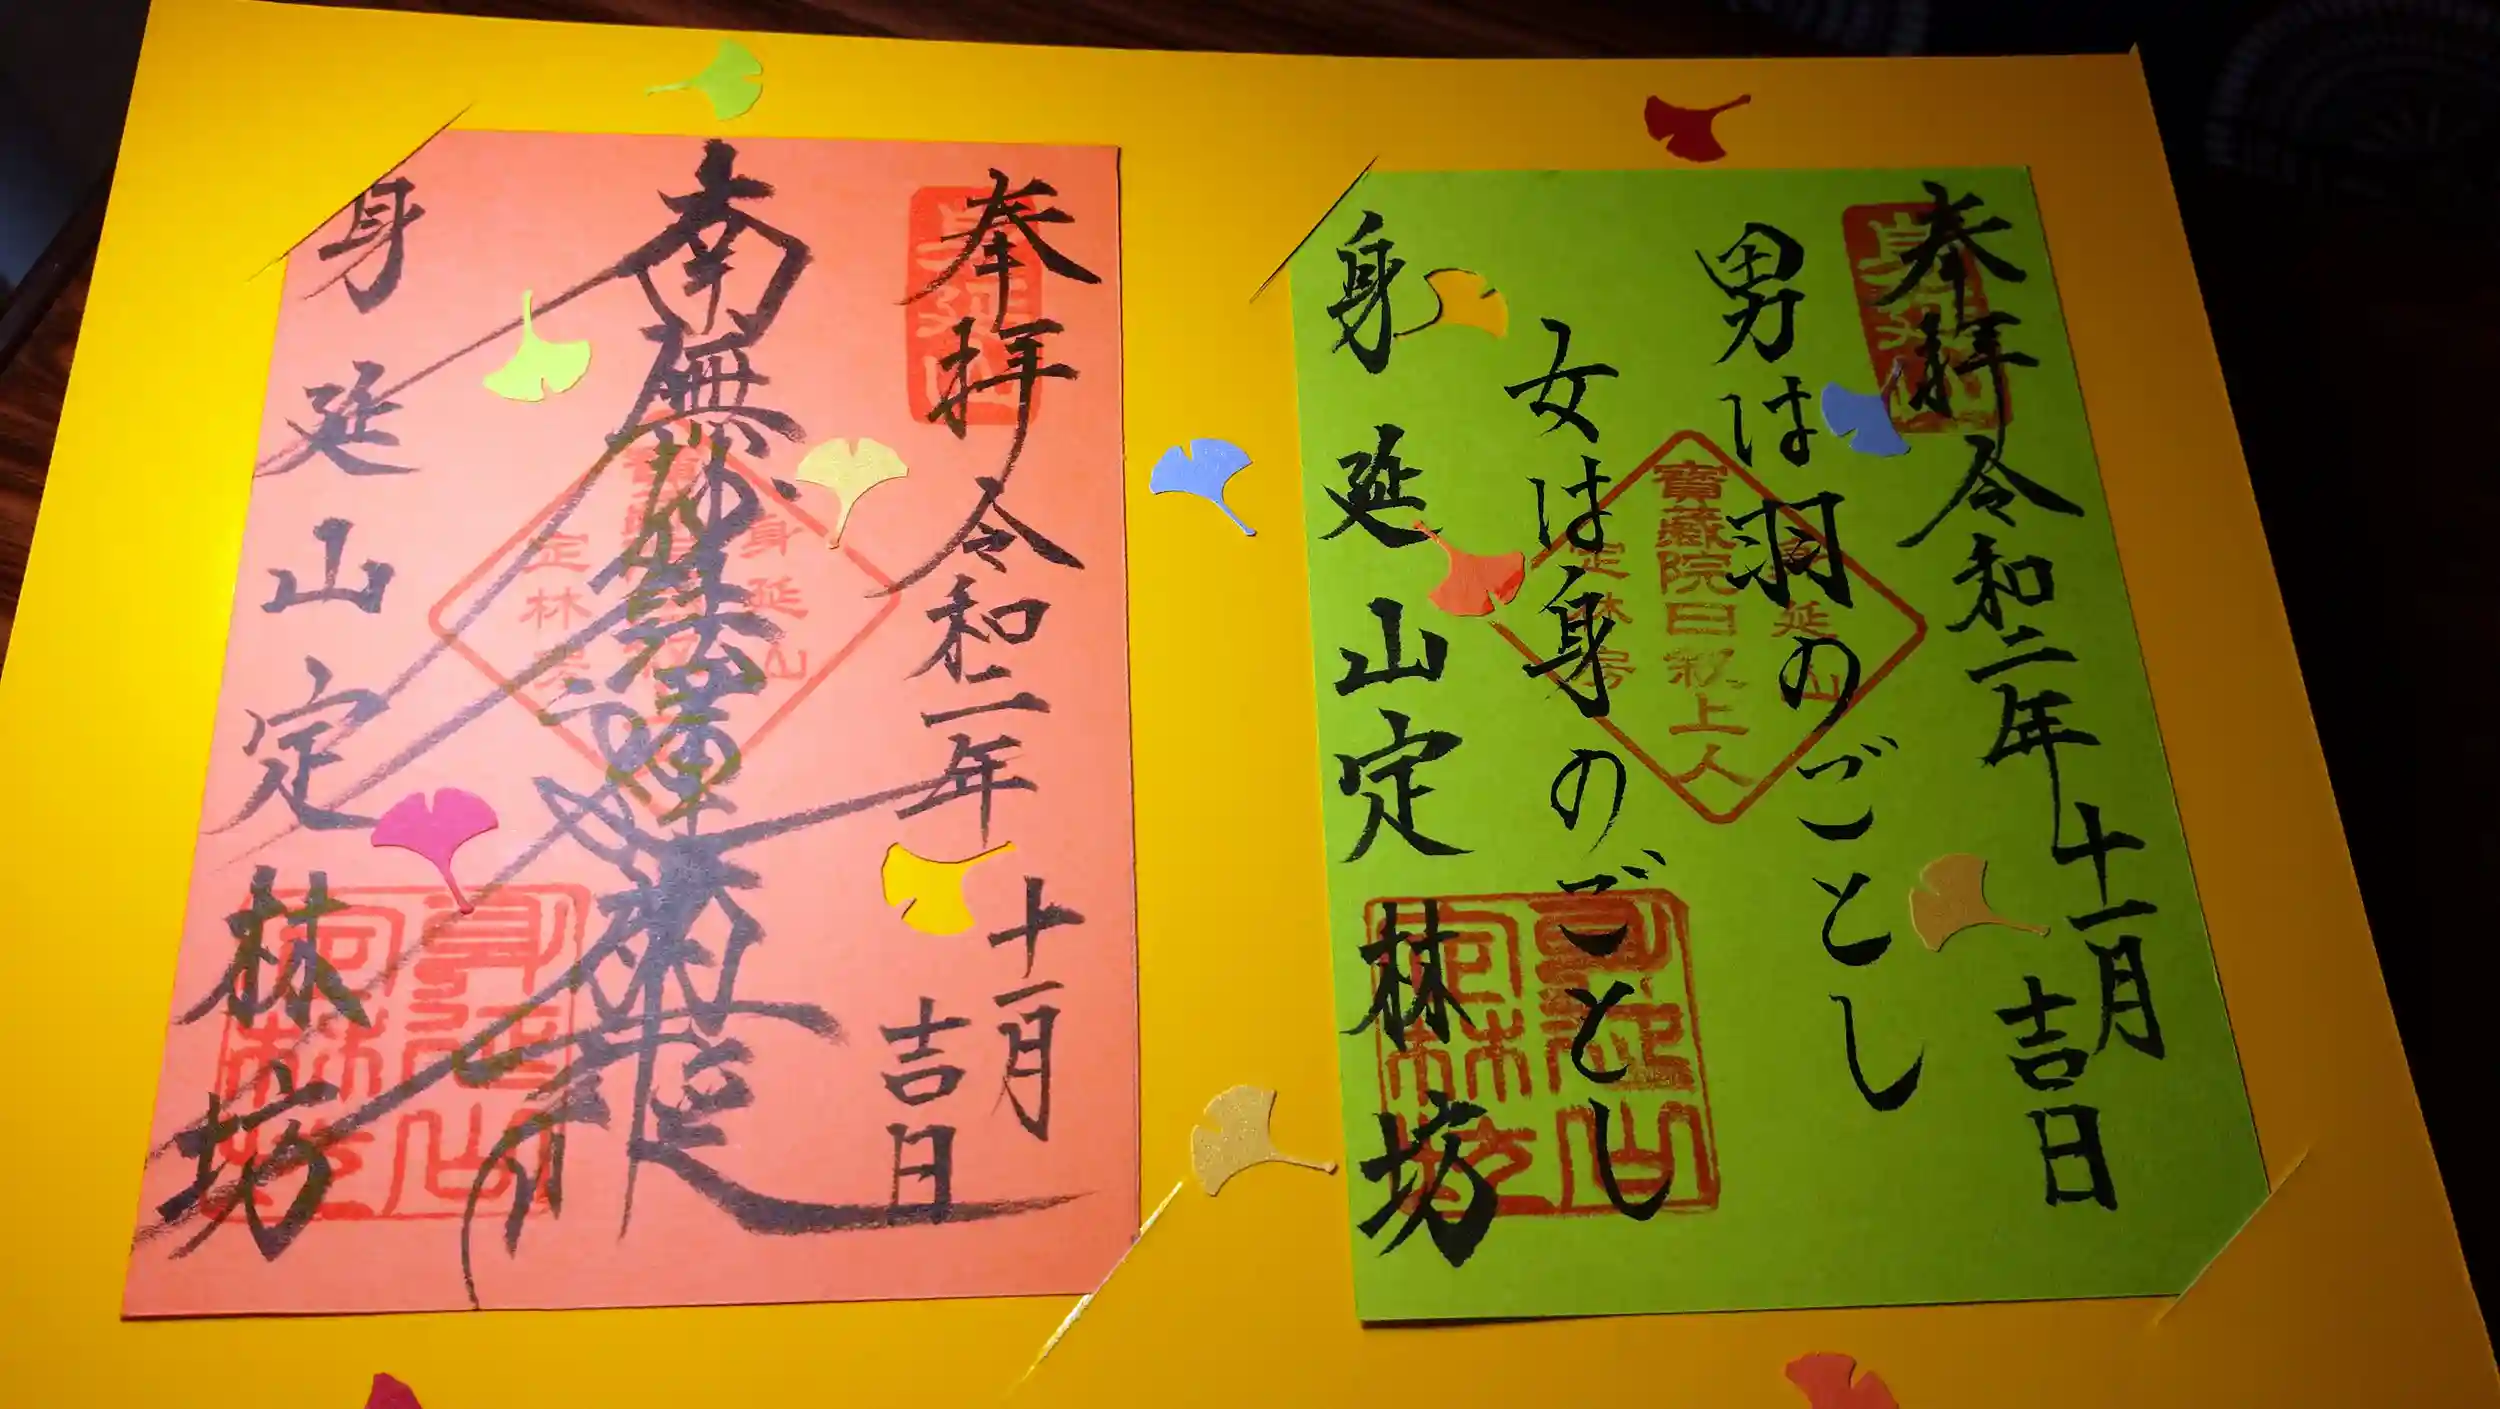 奉拝 令和二年 十一月
吉日
南無妙法蓮華経
身延山定林坊
身延山
身延山
定林坊
身延山
定林坊
奉拝 令和二年十一月
吉日
男は羽のごとし
女は身のごとし
身延山定林坊
身延山
身延山
寳蔵院日叙上人
定林房
身延山
定林坊